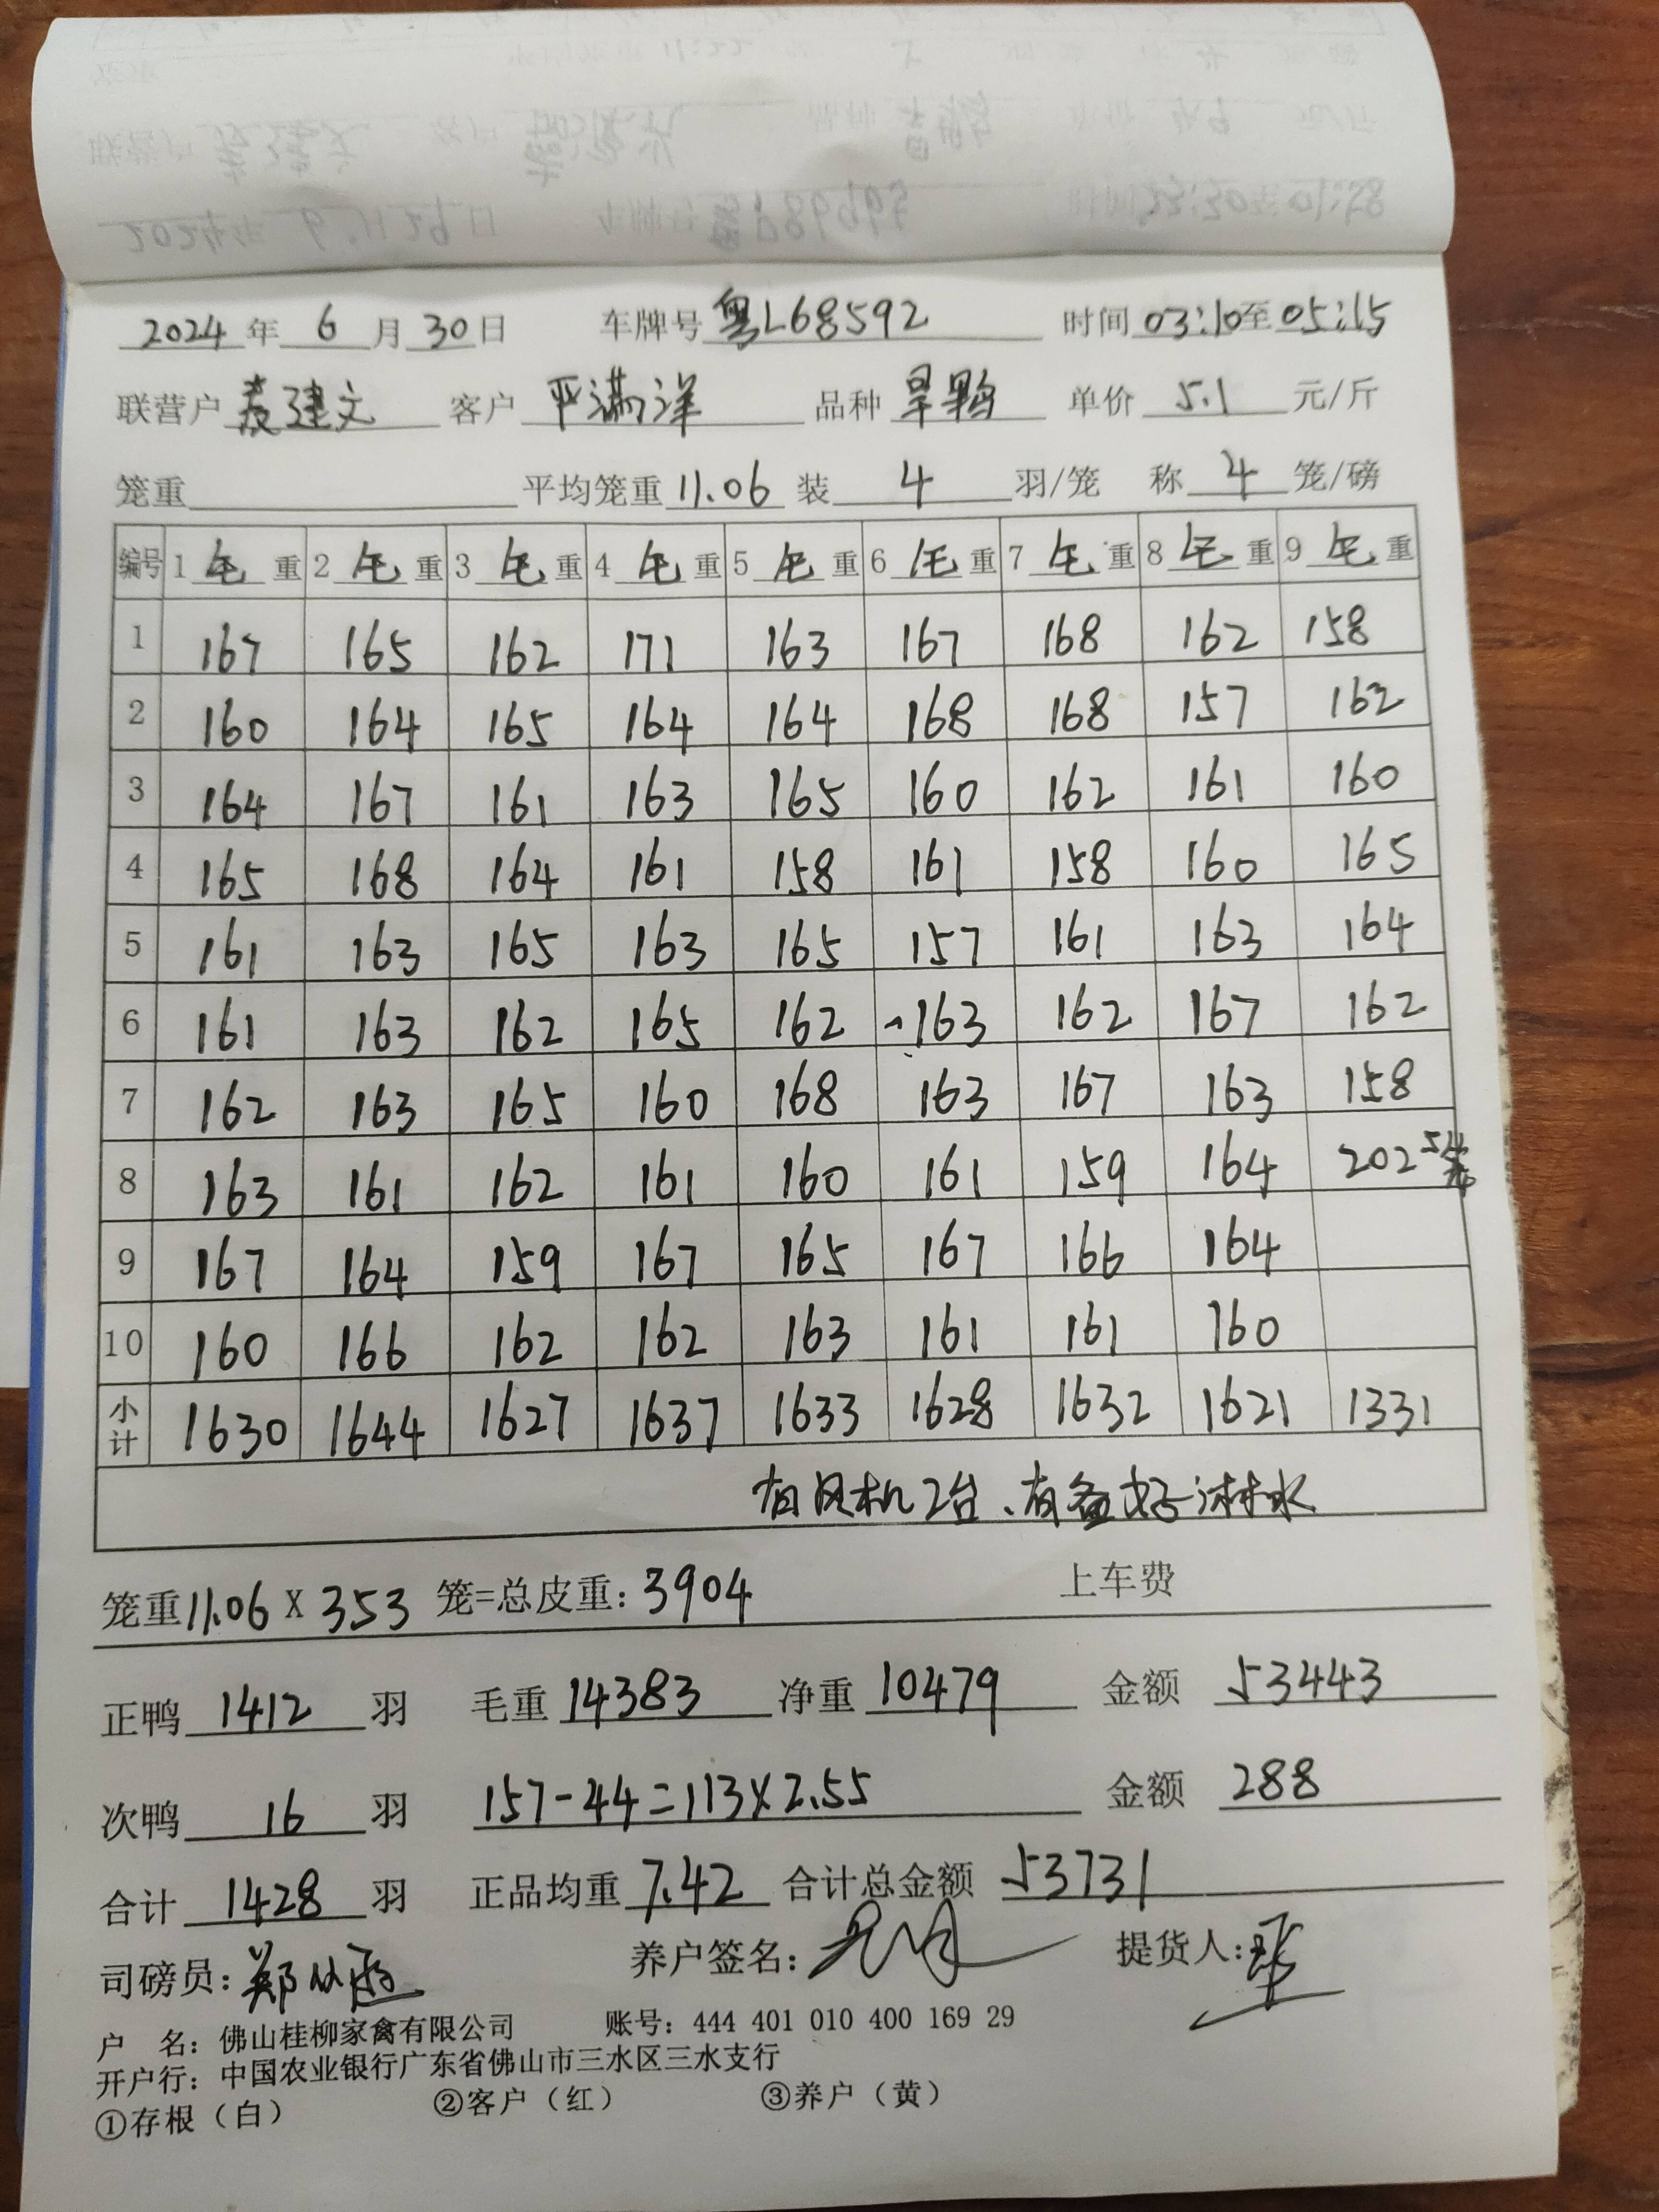 2024 年 6 月 30 日 车牌号 粤L68592 时间 03:10 至 05:15
联营户 麦建文 客户 严满洋 品种 旱鸭 单价 5.1 元/斤
笼重 平均笼重 11.06 装 4 羽/笼 称 4 笼/磅
编号 1 毛 重 2 毛 重 3 毛 重 4 毛 重 5 毛 重 6 毛 重 7 毛 重 8 毛 重 9 毛 重
1 167 165 162 171 163 167 168 162 158
2 160 164 165 164 164 168 168 157 162
3 164 167 161 163 165 160 162 161 160
4 165 168 164 161 158 161 158 160 165
5 161 163 165 163 165 157 161 163 164
6 161 163 162 165 162 163 162 167 162
7 162 163 165 160 168 163 167 163 158
8 163 161 162 161 160 161 159 164 202 5笼
9 167 164 159 167 165 167 166 164
10 160 166 162 162 163 161 161 160
小计 1630 1644 1627 1637 1633 1628 1632 1621 1331
有风机2台、有备好淋水
笼重 11.06 X 353 笼=总皮重: 3904 上车费
正鸭 1412 羽 毛重 14383 净重 10479 金额 53443
次鸭 16 羽 157-44=113X2.55 金额 288
合计 1428 羽 正品均重 7.42 合计总金额 53731
司磅员: 郑 养户签名: 提货人:
户 名: 佛山桂柳家禽有限公司 账号: 444 401 010 400 169 29
开户行: 中国农业银行广东省佛山市三水区三水支行
①存根（白） ②客户（红） ③养户（黄）